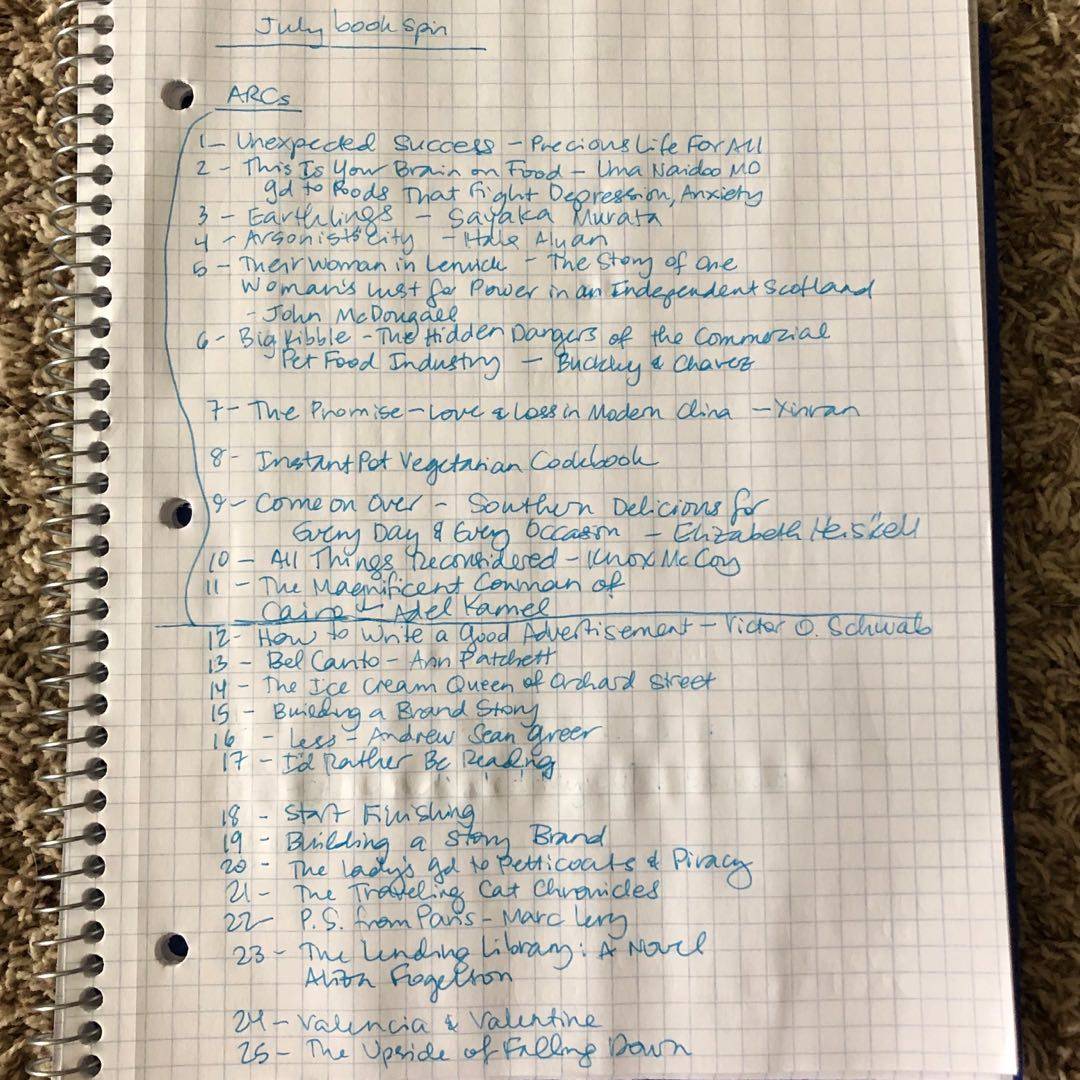 July book spin
ARCs
1 - Unexpected Success - Precious Life For All
2 - This Is Your Brain on Food - Uma Naidoo MD
gd to Foods That Fight Depression, Anxiety
3 - Earthlings - Sayaka Murata
4 - Arsonists City - Hala Alyan
5 - Their Woman in Lerwick - The Story of One
Woman's Lust for Power in an Independent Scotland
- John McDougall
6 - Big Kibble - The Hidden Dangers of the Commercial
Pet Food Industry - Buckley & Chavez
7 - The Promise - Love & Loss in Modern China - Xinran
8 - Instant Pot Vegetarian Cookbook
9 - Come on Over - Southern Delicious for
Every Day & Every Occasion - Elizabeth Heiskell
10 - All Things Reconsidered - Knox McCoy
11 - The Magnificent Conman of
Cairo - Adel Kamel
12 - How to Write a Good Advertisement - Victor O. Schwab
13 - Bel Canto - Ann Patchett
14 - The Ice Cream Queen of Orchard Street
15 - Building a Brand Story
16 - Less - Andrew Sean Greer
17 - I'd Rather Be Reading
18 - Start Finishing
19 - Building a Story Brand
20 - The Lady's gd to Petticoats & Piracy
21 - The Traveling Cat Chronicles
22 - P.S. from Paris - Marc Levy
23 - The Lending Library: A Novel
Aliza Fogelson
24 - Valencia & Valentine
25 - The Upside of Falling Down